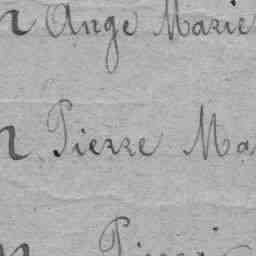 n Ange Marie
n Pierre Ma
n Pierre